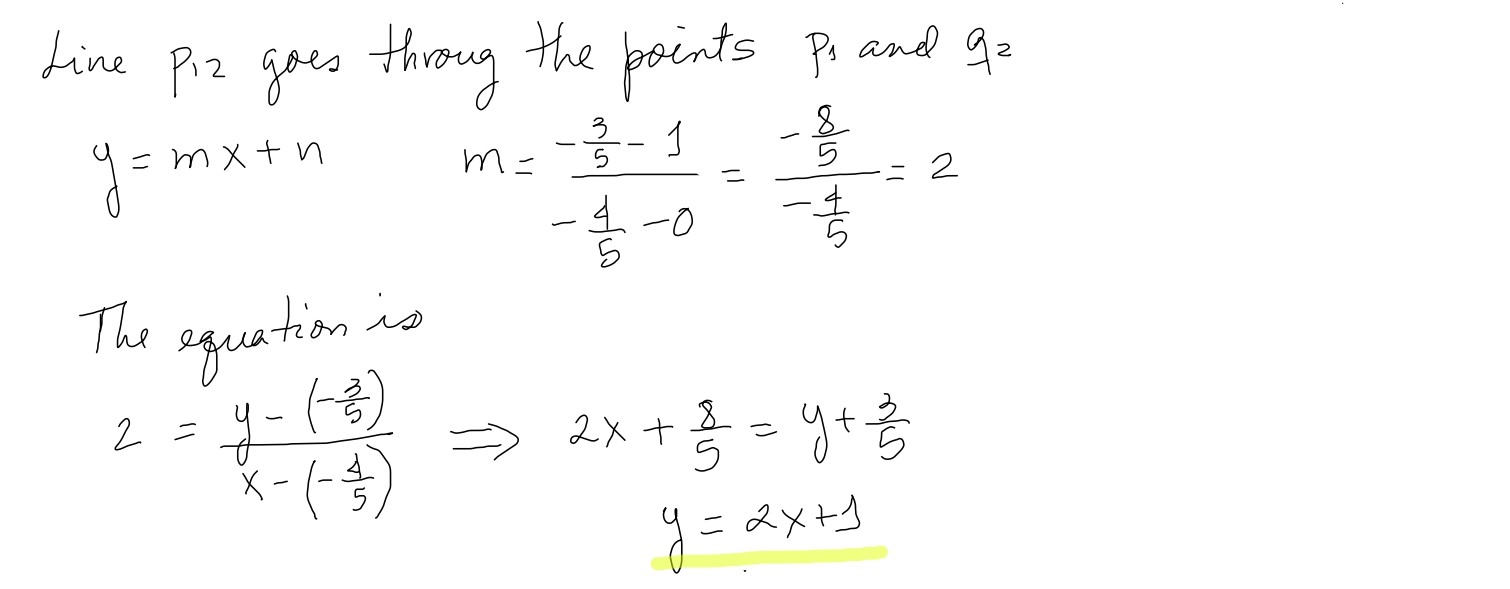 Line p12 goes throug the points p1 and q2
y = mx + n m = (-3/5 - 1)/(-4/5 - 0) = (-8/5)/(-4/5) = 2
The equation is
2 = (y - (-3/5))/(x - (-4/5)) ⟹ 2x + 8/5 = y + 3/5
y = 2x + 1